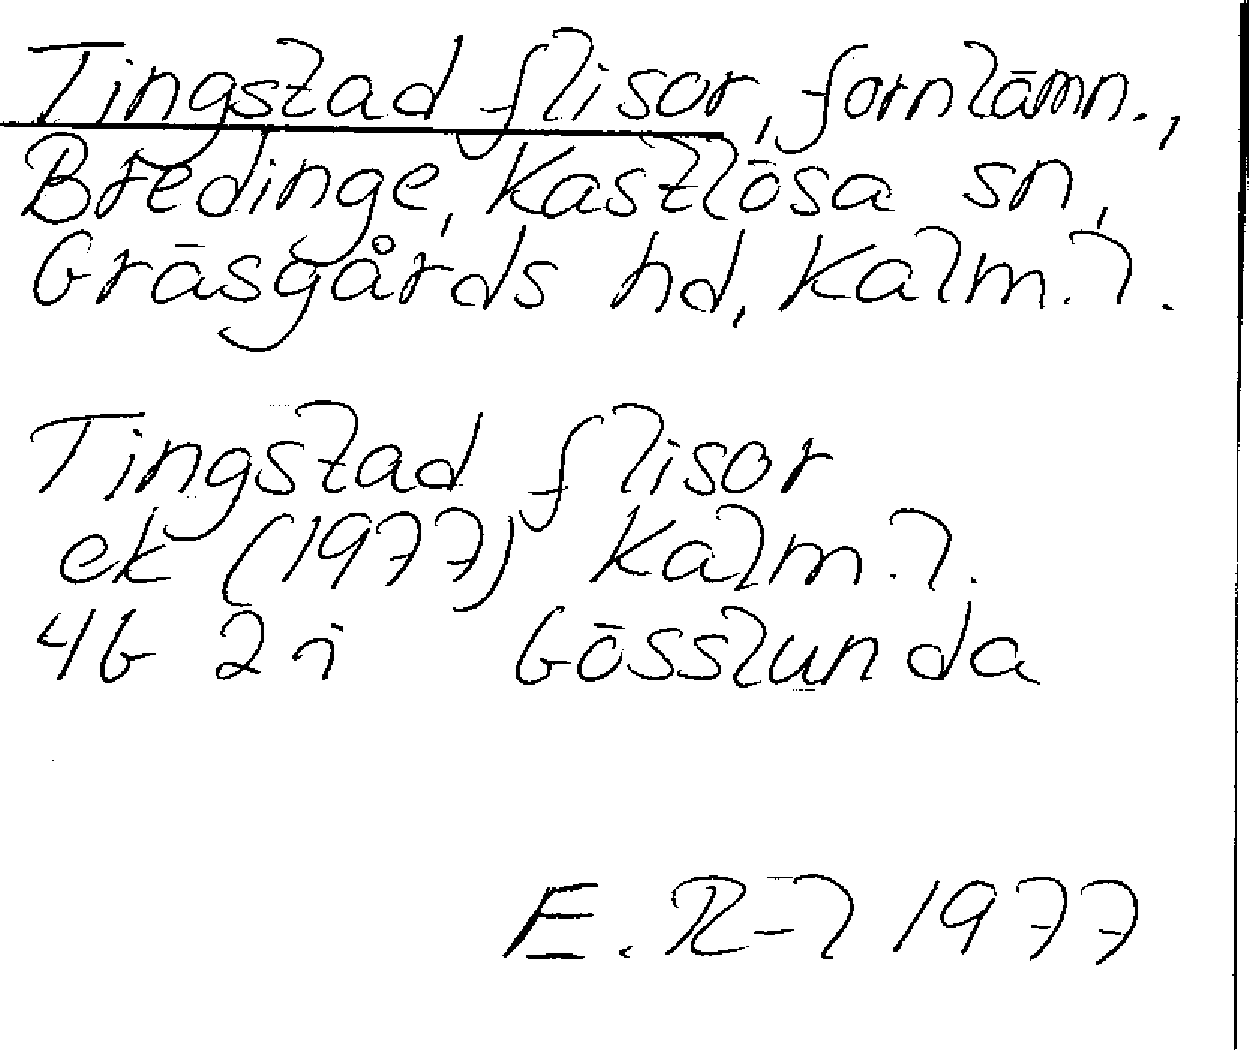 Tingstad flisor, fornlämn.,
Bredinge, Kastlösa sn,
Gräsgårds hd, Kalm. l.
Tingstad flisor
ek (1977) Kalm. l.
4G 2i Gösslunda
E. R-l 1977